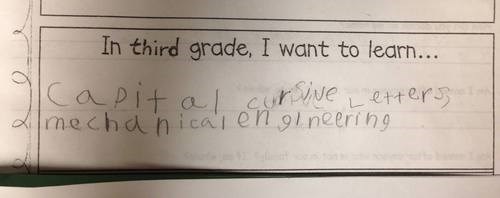 In third grade, I want to learn...
Capital cursive Letters,
mechanical engineering